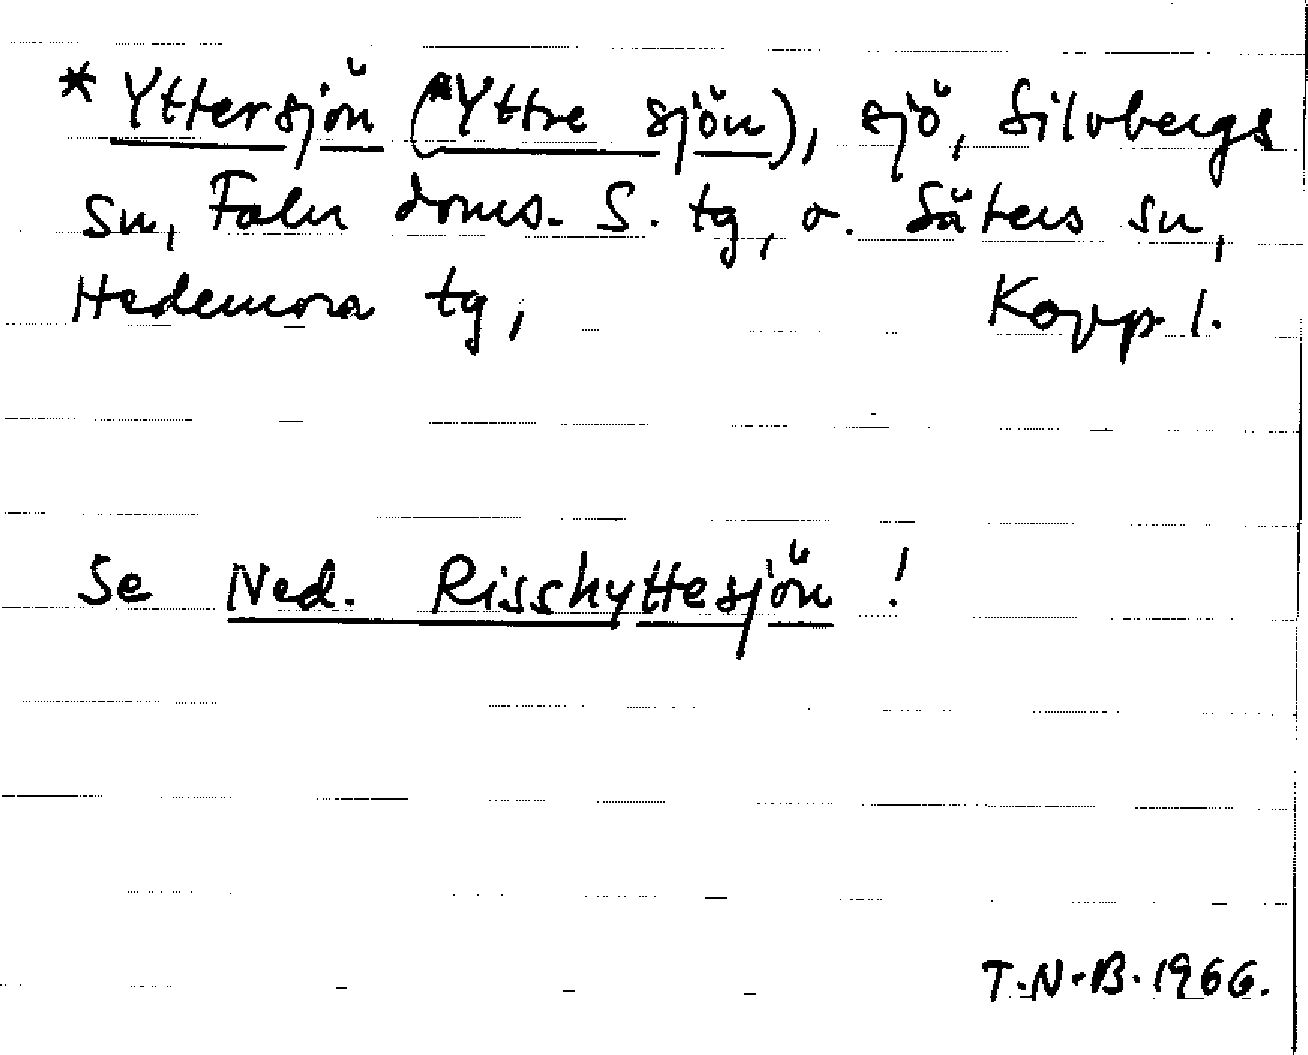 * Yttersjön (*Yttre sjön), sjö, Silvbergs
sn, Falu doms. S. tg, o. Säters sn,
Hedemora tg, Kopp. l.
Se Ned. Risshyttesjön !
T.N.B. 1966.